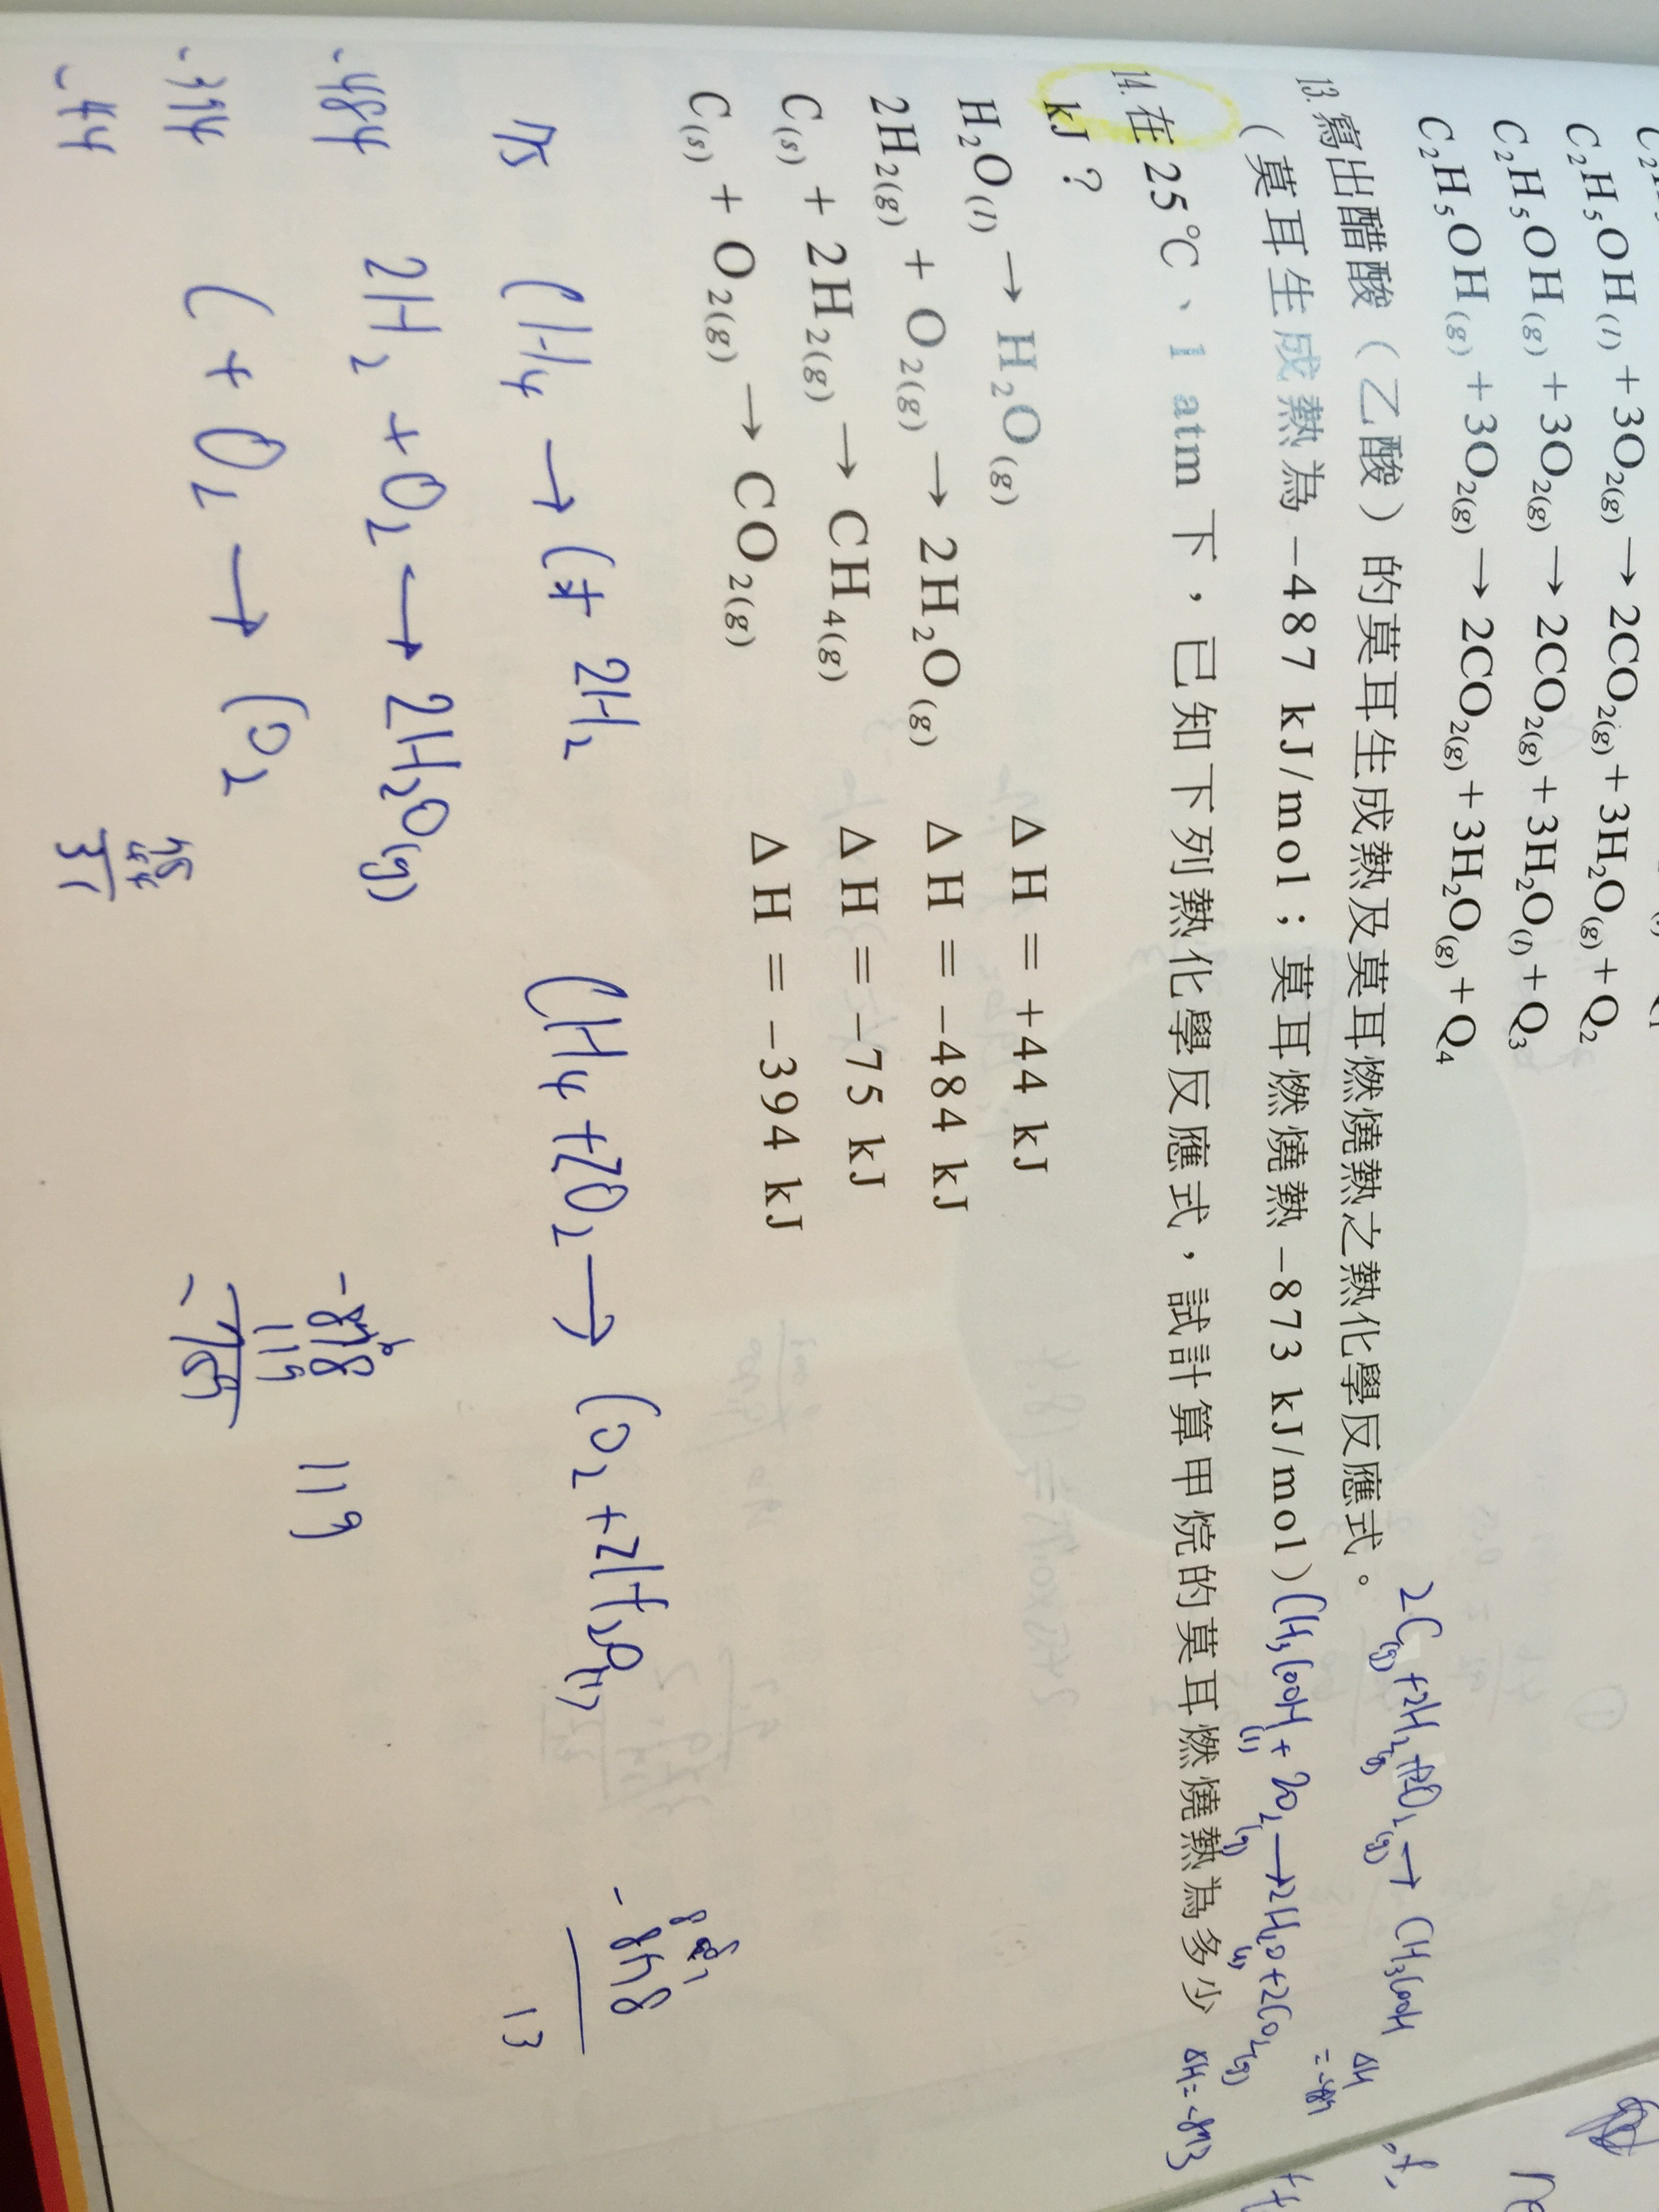 C₂H₅OH(l) + 3O₂(g) → 2CO₂(g) + 3H₂O(g) + Q₂
C₂H₅OH(g) + 3O₂(g) → 2CO₂(g) + 3H₂O(l) + Q₃
C₂H₅OH(g) + 3O₂(g) → 2CO₂(g) + 3H₂O(g) + Q₄
13. 寫出醋酸（乙酸）的莫耳生成熱及莫耳燃燒熱之熱化學反應式。
（莫耳生成熱為 –487 kJ/mol；莫耳燃燒熱 –873 kJ/mol）
2C(g) + 2H₂(g) + O₂(g) → CH₃COOH ΔH = -487
CH₃COOH(l) + 2O₂(g) → 2H₂O(l) + 2CO₂(g) ΔH = -873
14. 在 25℃、1 atm 下，已知下列熱化學反應式，試計算甲烷的莫耳燃燒熱為多少
kJ？
H₂O(l) → H₂O(g) ΔH = +44 kJ
2H₂(g) + O₂(g) → 2H₂O(g) ΔH = –484 kJ
C(s) + 2H₂(g) → CH₄(g) ΔH = –75 kJ
C(s) + O₂(g) → CO₂(g) ΔH = –394 kJ
75 CH₄ → C + 2H₂ CH₄ + 2O₂ → CO₂ + 2H₂O(l)
-878
13
-484 2H₂ + O₂ → 2H₂O(g)
-878
119
-759
119
-394 C + O₂ → CO₂
-44
75
44
31